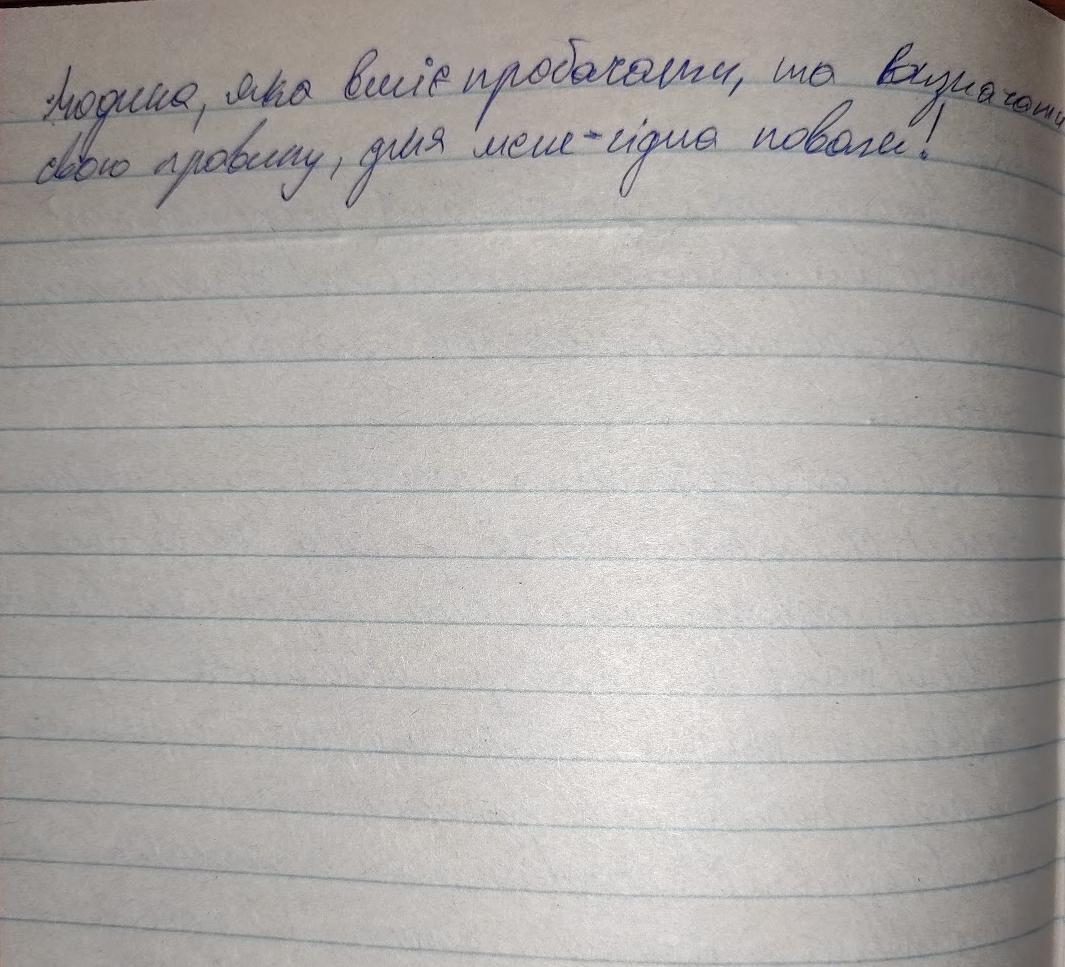 Людина, яка вміє пробачати, та визначати
свою провину, для мене-гідна поваги!